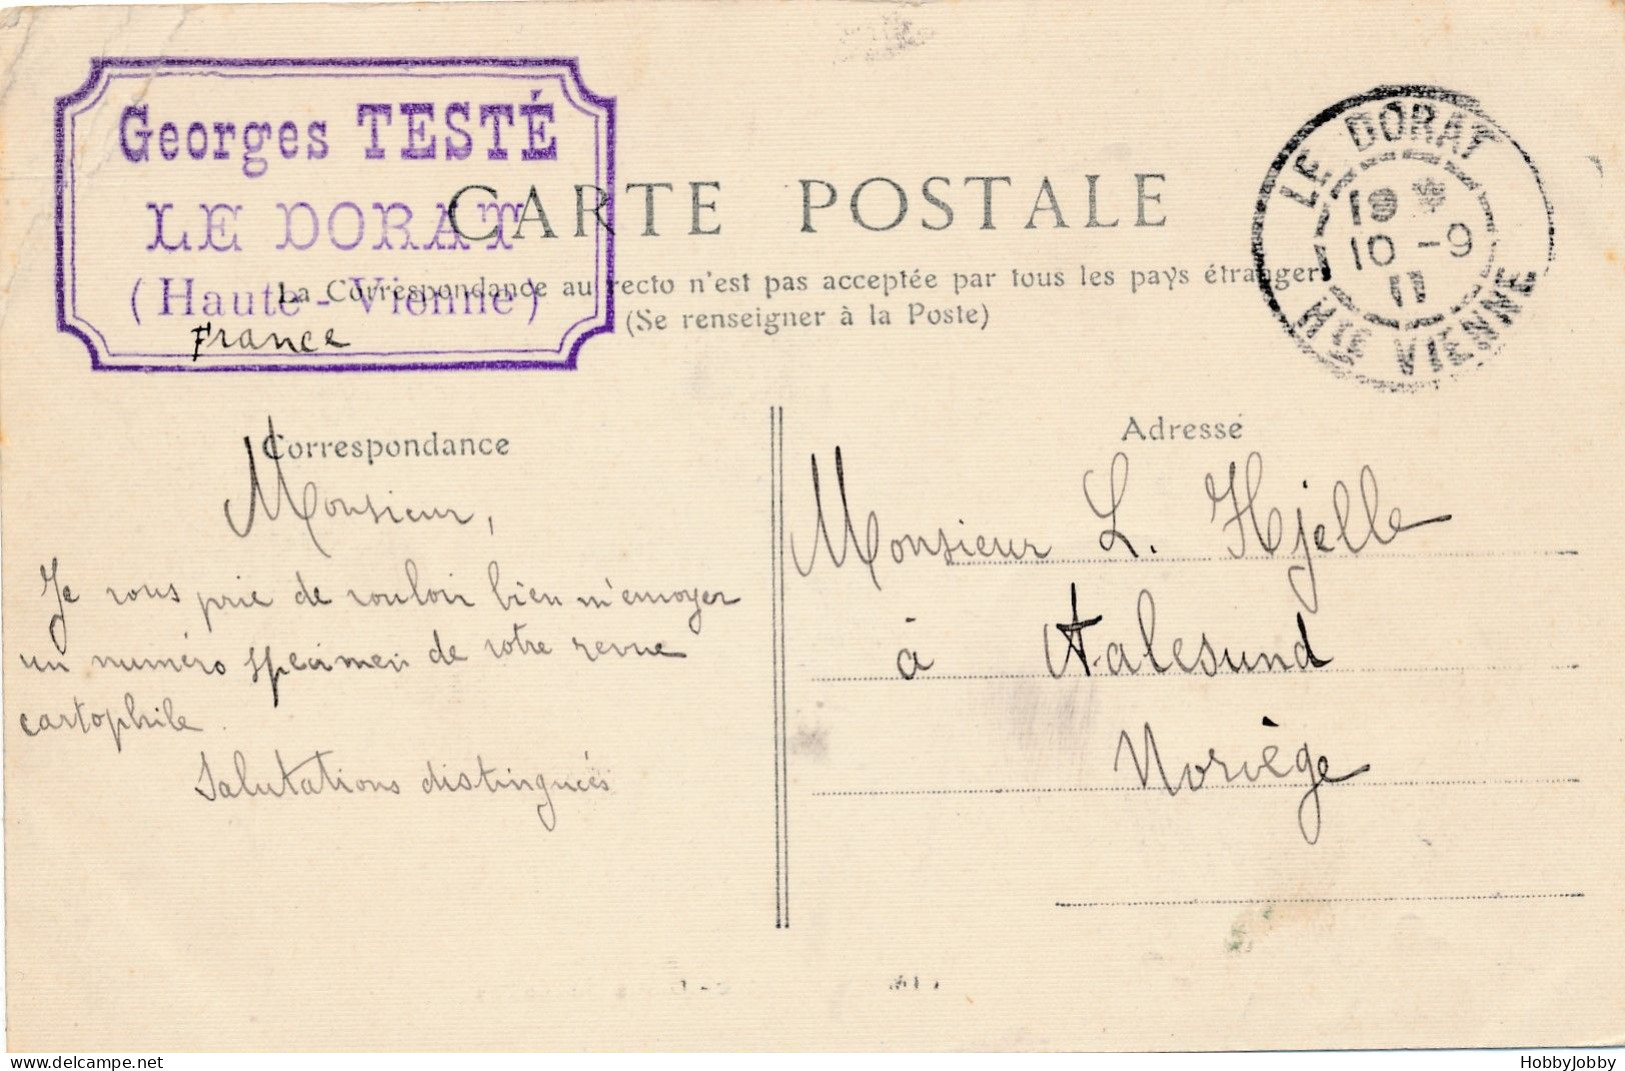 Georges TESTÉ
LE DORAT
(Haute-Vienne)
France
CARTE POSTALE
La Correspondance au recto n'est pas acceptée par tous les pays étrangers
(Se renseigner à la Poste)
LE DORAT
10 -9
11
HTE VIENNE
Correspondance
Monsieur,
Je vous prie de vouloir bien m'envoyer
un numéro specimen de votre revue
cartophile.
Salutations distinguées
Adresse
Monsieur L. Hjelle
à Aalesund
Norvège
www.delcampe.net
HobbyJobby